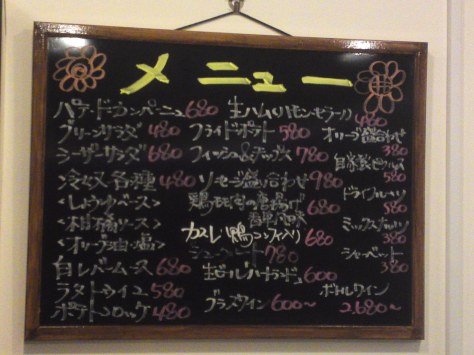 メニュー
パテ・ド・カンパーニュ 680
グリーンサラダ 480
シーザーサラダ 680
冷奴 各種 480
<しょうゆベース>
<オリーブ油・塩>
白レバームース 680
ラタトゥイユ 580
ポテトコロッケ 480
生ハム 480
フライドポテト 580
フィッシュ&チップス 780
ソーセージ盛り合わせ 980
680
カスレ 鴨コンフィ入り 680
780
生ビール ハートランド 600
グラスワイン 600～
オリーブ盛合わせ 380
自家製ピクルス 580
ドライフルーツ 380
ミックスナッツ 380
シャーベット 380
ボトルワイン
2.680～